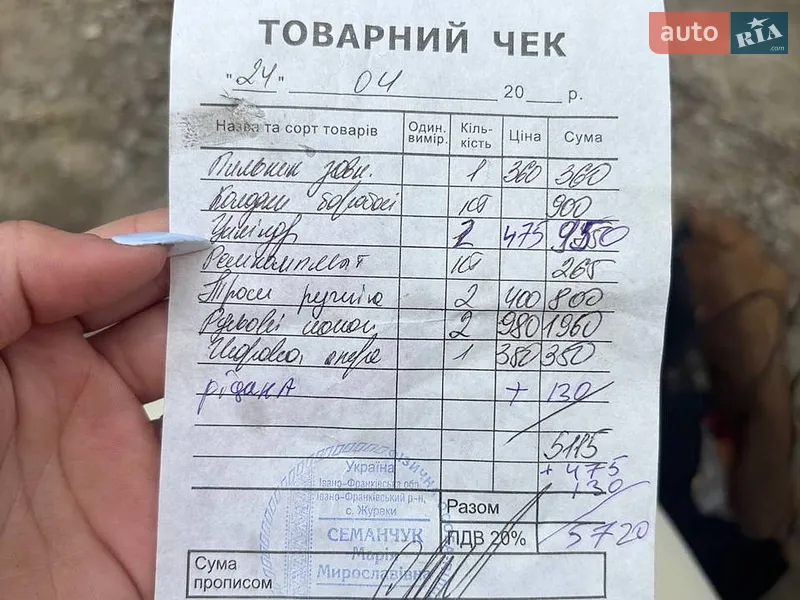 auto RIA .com
ТОВАРНИЙ ЧЕК
"24" 04 20 р.
Назва та сорт товарів Один. вимір. Кіль-кість Ціна Сума
Пильник зовн. 1 360 360
Колодки барабані кт 900
Циліндр 2 475 950
Ремкомплект кт 265
Троси ручніка 2 400 800
Рульові 2 980 1960
Шарова опора 1 350 350
рідина + 130
5115
+ 475
130
Разом
ПДВ 20% 5720
Україна
Івано-Франківська обл.
Івано-Франківський р-н,
с. Жураки
СЕМАНЧУК
Марія
Мирославівна
Сума прописом